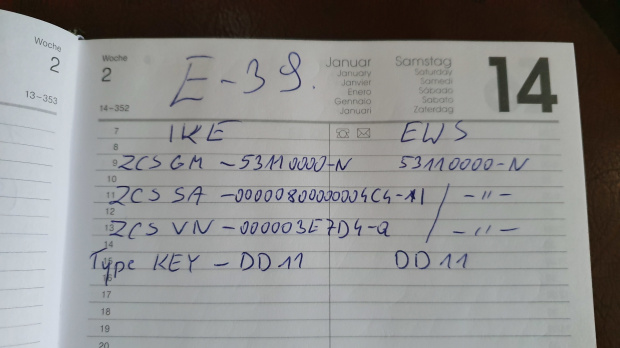 Woche
2
13-353
Woche
2
14-352
E-39.
Januar
January
Janvier
Enero
Gennaio
Januari
Samstag
Saturday
Samedi
Sábado
Sabato
Zaterdag
14
7
IKE EWS
8
9 ZCS GM - 53110000-N 53110000-N
10
11 ZCS SA -0000080000004C4- / - 〃 -
12
13 ZCS VN - 000003E7D4-Q / - 〃 -
14
Type KEY - DD11 DD11
16
17
18
19
20